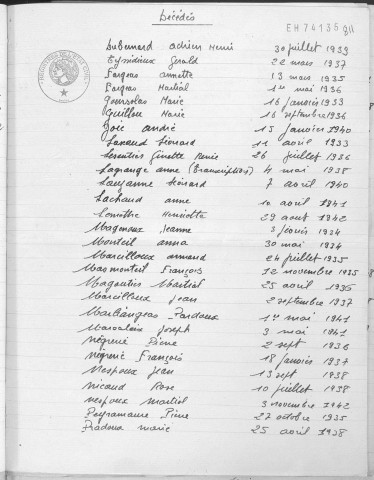 Décédés
EH74135
Dubernard adrien Henri 30 juillet 1933
Eymdieux Gerald 22 mars 1937
Fargeas annette 13 mars 1935
Fargeas Martial 1er mai 1936
Gourselas Marie 16 janvier 1933
Guillou Marie 16 septembre 1936
Joie andré 15 janvier 1940
Lanaud Léonard 11 avril 1933
Ginette Renée 26 juillet 1936
Lagrange anne (transcription) 4 mai 1938
Lavyanne Léonard 7 avril 1940
Lachaud anne 10 avril 1941
Lamothe Henriette 29 aout 1942
Magenoux Jeanne 3 février 1934
Monteil anna 30 mai 1934
Marcilloux armand 24 juillet 1935
Masmonteil François 12 novembre 1935
Magoutier Martial 25 avril 1936
Marcilloux Jean 2 septembre 1937
Marlhangeas Pardoux 1er mai 1941
Marsaloix Joseph 3 mai 1941
Négrerie Pierre 2 sept 1936
Négrerie François 18 janvier 1937
Nespoux Jean 13 sept 1938
Nicaud Rose 10 juillet 1938
Nespoux Martial 3 novembre 1942
Peyramaure Pierre 27 octobre 1935
Pradoux marie 25 avril 1938